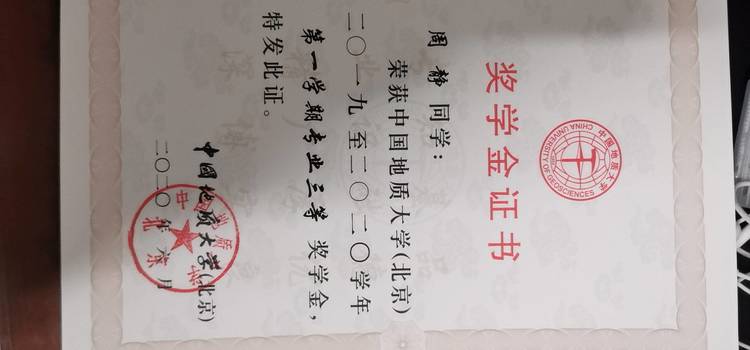 中国地质大学
CHINA UNIVERSITY OF GEOSCIENCES
奖学金证书
周静同学：
荣获中国地质大学(北京)
二〇一九至二〇二〇学年
第一学期专业三等奖学金，
特发此证。
中国地质大学(北京)
二〇二〇年六月